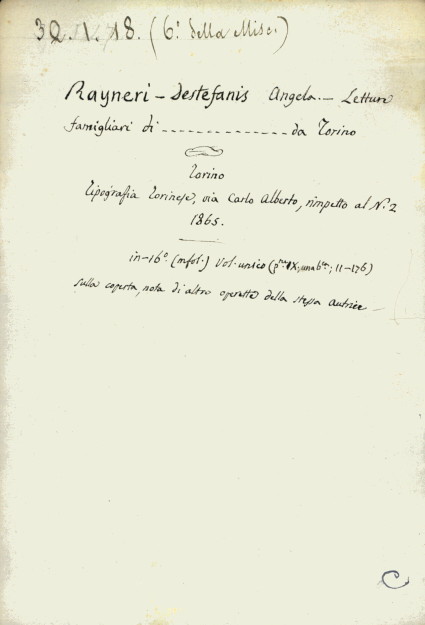 30.1.18. (6ª della Misc.)
Rayneri - Destefanis Angela. - Letture
famigliari di -------------- da Torino
Torino
Tipografia Torinese, via Carlo Alberto, rimpetto al N.º 2
1865.
in-16º (mfol.) Vol. unico (pne IX; una bca; 11-176)
sulla coperta, nota di altre operette della stessa autrice -
C